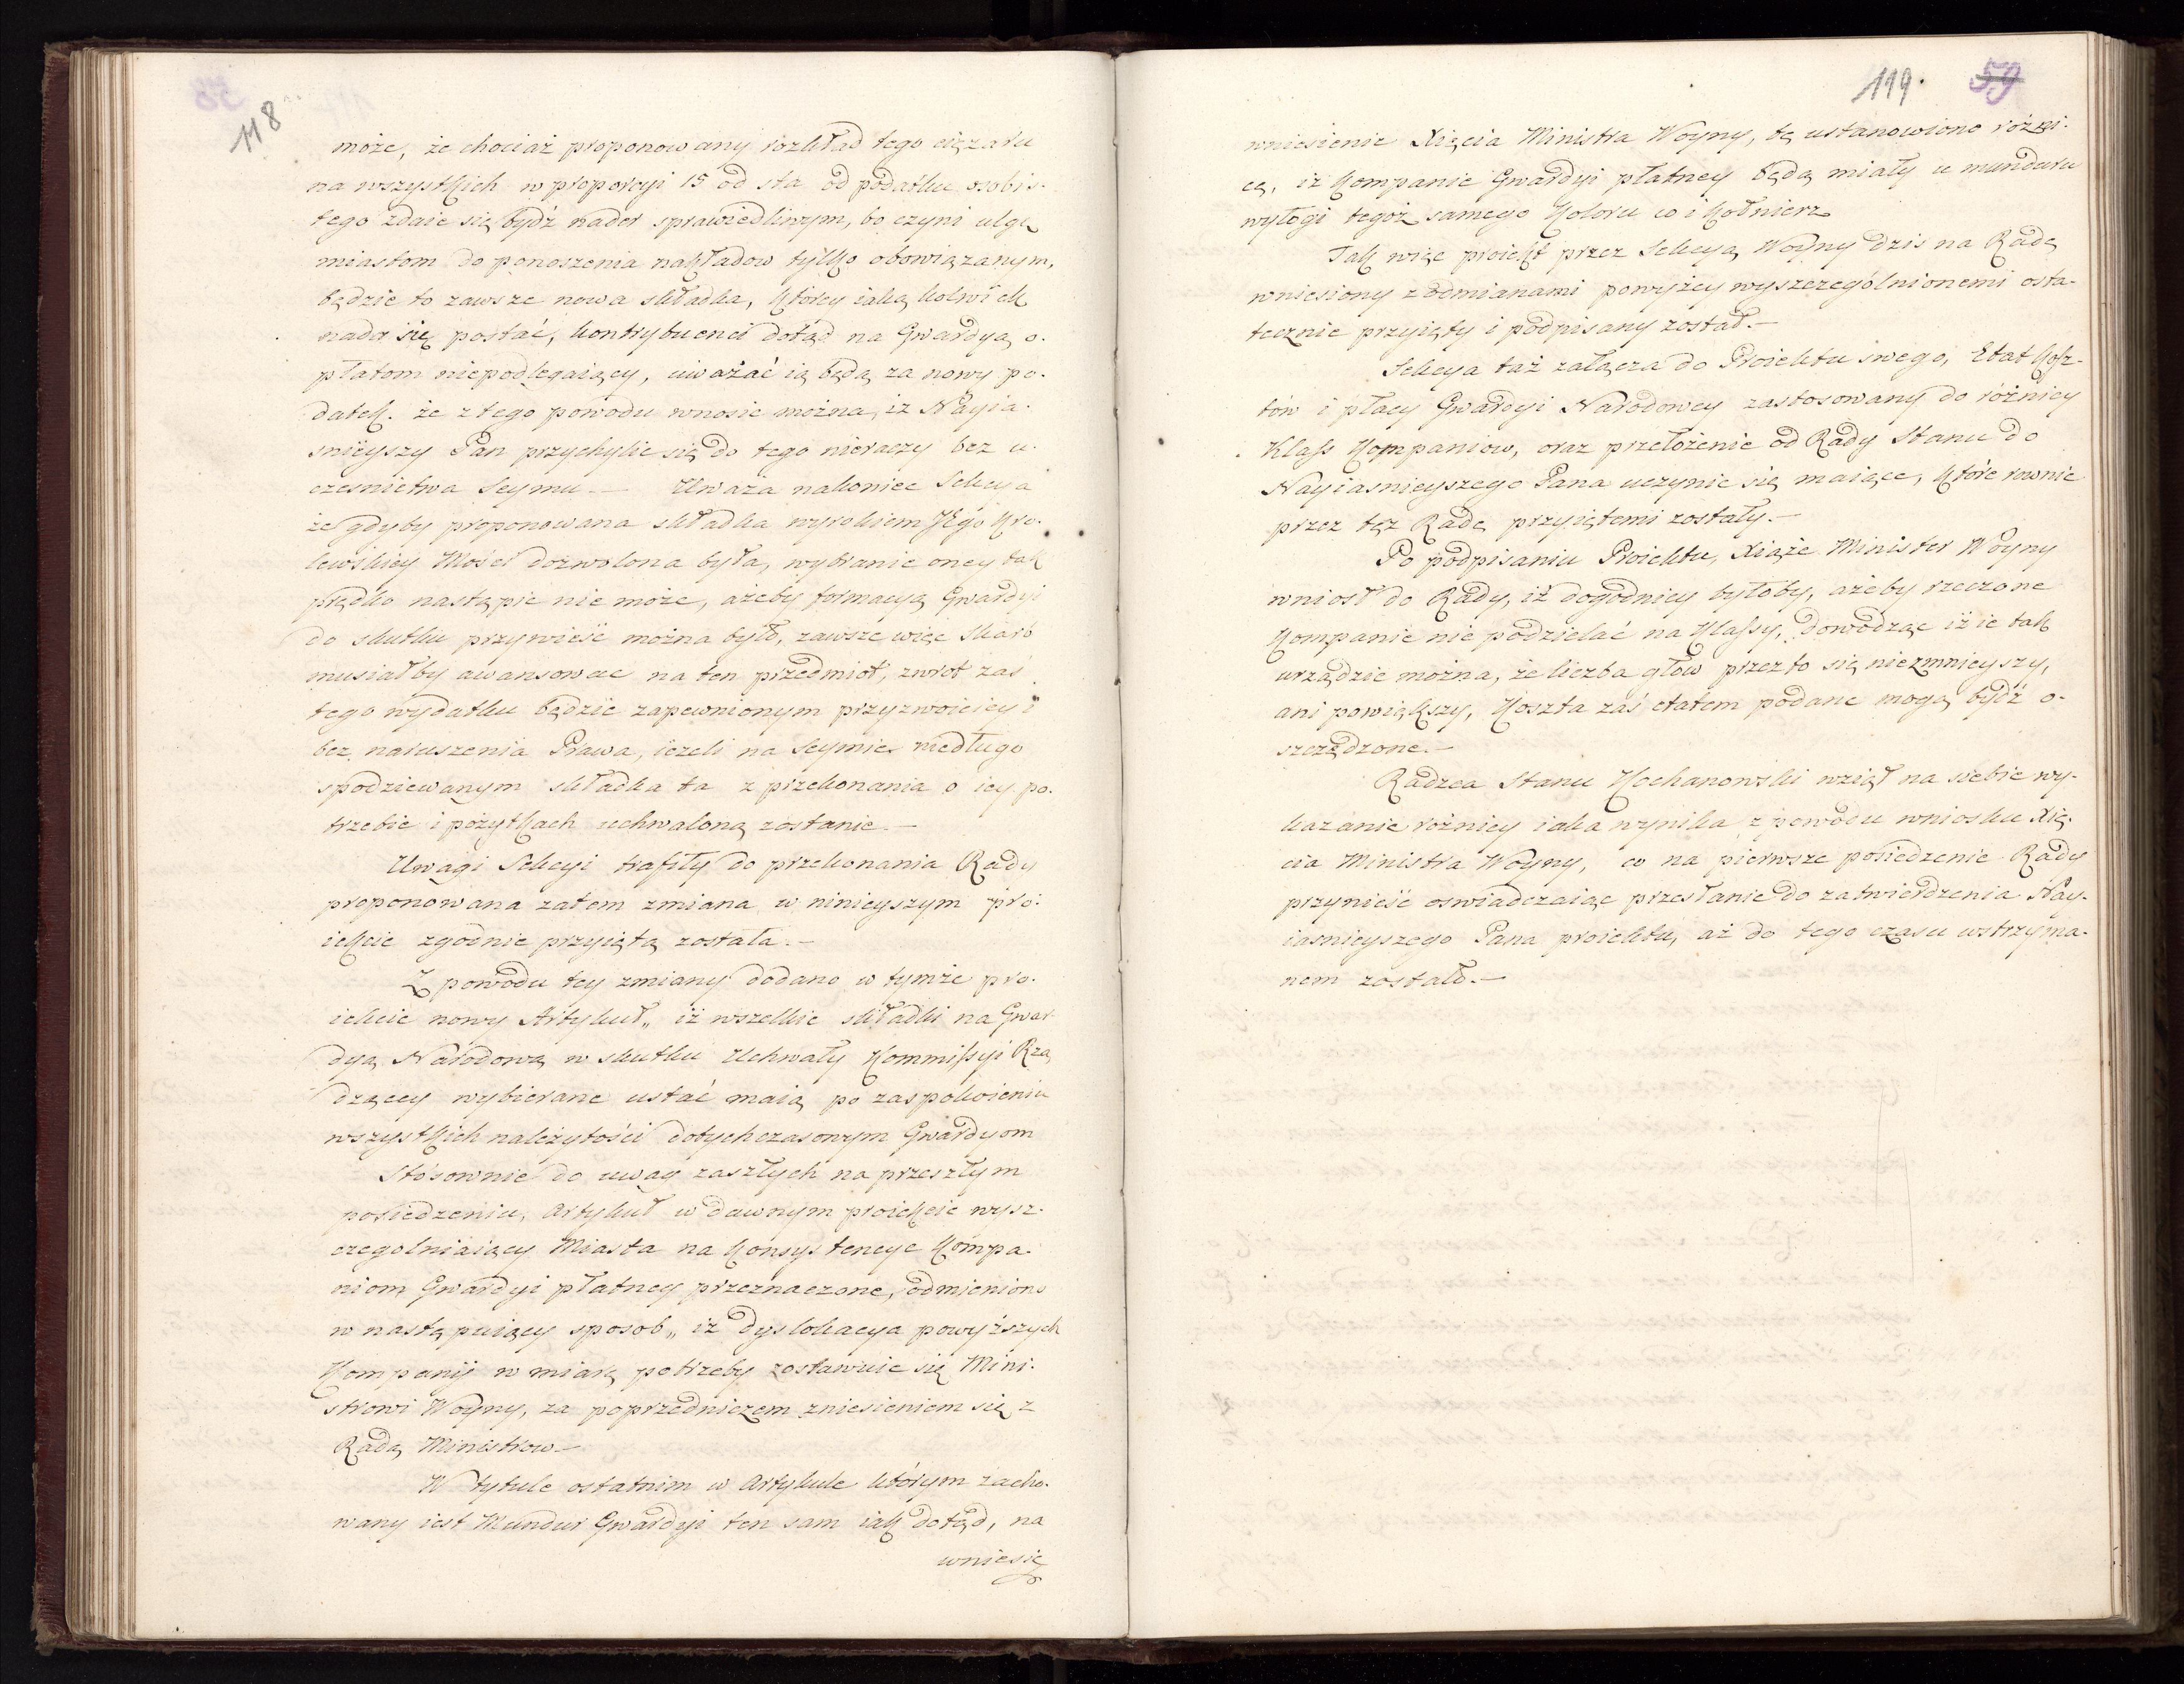 118
może, że chociaż proponowany rozkład tego ciężaru
na wszystkich w proporcyi 15 od sta od podatku osobis-
tego zdaie się bydź nader sprawiedliwym, bo czyni ulgę
miastom do ponoszenia nakładow tylko obowiązanym,
będzie to zawsze nowa składka, którey iaką kolwiek
nada się postać, kontrybuenci dotąd na Gwardyą o-
płatom niepodlegaiący, uważać ią będą za nowy po-
datek. że z tego powodu wnosic można, iż Nayia-
snieyszy Pan przychylic się do tego nieraczy bez u-
czesnictwa Seymu.— Uważa nakoniec Sekcya
że gdyby proponowana składka wyrokiem JEgo Kro-
lewskiey Mości dozwolona była, wybranie oney tak
prędko nastąpic nie może, ażeby formacyą Gwardyi
do skutku przywieść można było, zawsze więc Skarb
musiałby awansowac na ten przedmiot, zwrot zaś
tego wydatku będzie zapewnionym przyzwoiciey i
bez naruszenia Prawa, ieżeli na Seymie niedługo
spodziewanym składka ta z przekonania o iey po-
trzebie i pożytkach uchwaloną zostanie.—
Uwagi Sekcyi trafiły do przekonania Rady
proponowana zatem zmiana w ninieyszym pro-
iekcie zgodnie przyiętą została.—
Z powodu tey zmiany dodano w tymże pro-
iekcie nowy Artykuł„ iż wszelkie składki na Gwar-
dyą Narodową w skutku Uchwały Kommissyi Rzą
dzącey wybierane ustać maią po zaspokoieniu
wszystkich należytości dotychczasowym Gwardyom
Stósownie do uwag zaszłych na przeszłym
posiedzeniu, Artykuł w dawnym proiekcie wysz-
czegolniaiący Miasta na konsystencye kompa-
niom Gwardyi płatney przeznaczone, odmieniono
w następuiący sposob„ iż dyslokacya powyższych
Kompanij w miarę potrzeby zostawuie się Mini-
strowi Woyny, za poprzedniczem zniesieniem się z
Radą Ministrow—
W tytule ostatnim w Artykule którym zacho-
wany iest Mundur Gwardyi ten sam iak dotąd, na
wniesie
119. 59
wniesienie Xięcia Ministra Woyny, tę ustanowiono różni-
cę, iż kompanie Gwardyi płatney będą miały u munduru
wyłogi tegoż samego koloru co i kołnierz
Tak więc proiekt przez Sekcyą Woyny dzis na Radę
wniesiony z odmianami powyżey wyszczególnionemi osta-
tecznie przyięty i podpisany został.—
Sekcya taż załącza do Proiektu swego, Etat kosz-
tów i płacy Gwardyi Narodowey zastosowany do różnicy
Klass Kompaniow, oraz przełożenie od Rady Stanu do
Nayiasnieyszego Pana uczynic się maiące, które rownie
przez tęż Radę przyiętemi zostały.—
Po podpisaniu Proiektu, Xiąże Minister Woyny
wniosł do Rady, iż dogodniey byłoby, ażeby rzeczone
kompanie nie podzielać na klassy, dowodząc iż ie tak
urządzic można, że liczba głów przez to się niezmnieyszy,
ani powiększy, koszta zaś etatem podane mogą bydź o-
szczędzone.—
Radzca Stanu Kochanowski wziął na siebie wy-
kazanie rożnicy iaka wynika z powodu wniosku Xię-
cia Ministra Woyny, co na pierwsze posiedzenie Rady
przynieść oswiadczaiąc przesłanie do zatwierdzenia Nay-
iasnieyszego Pana proiektu, aż do tego czasu wstrzyma-
nem zostało.—